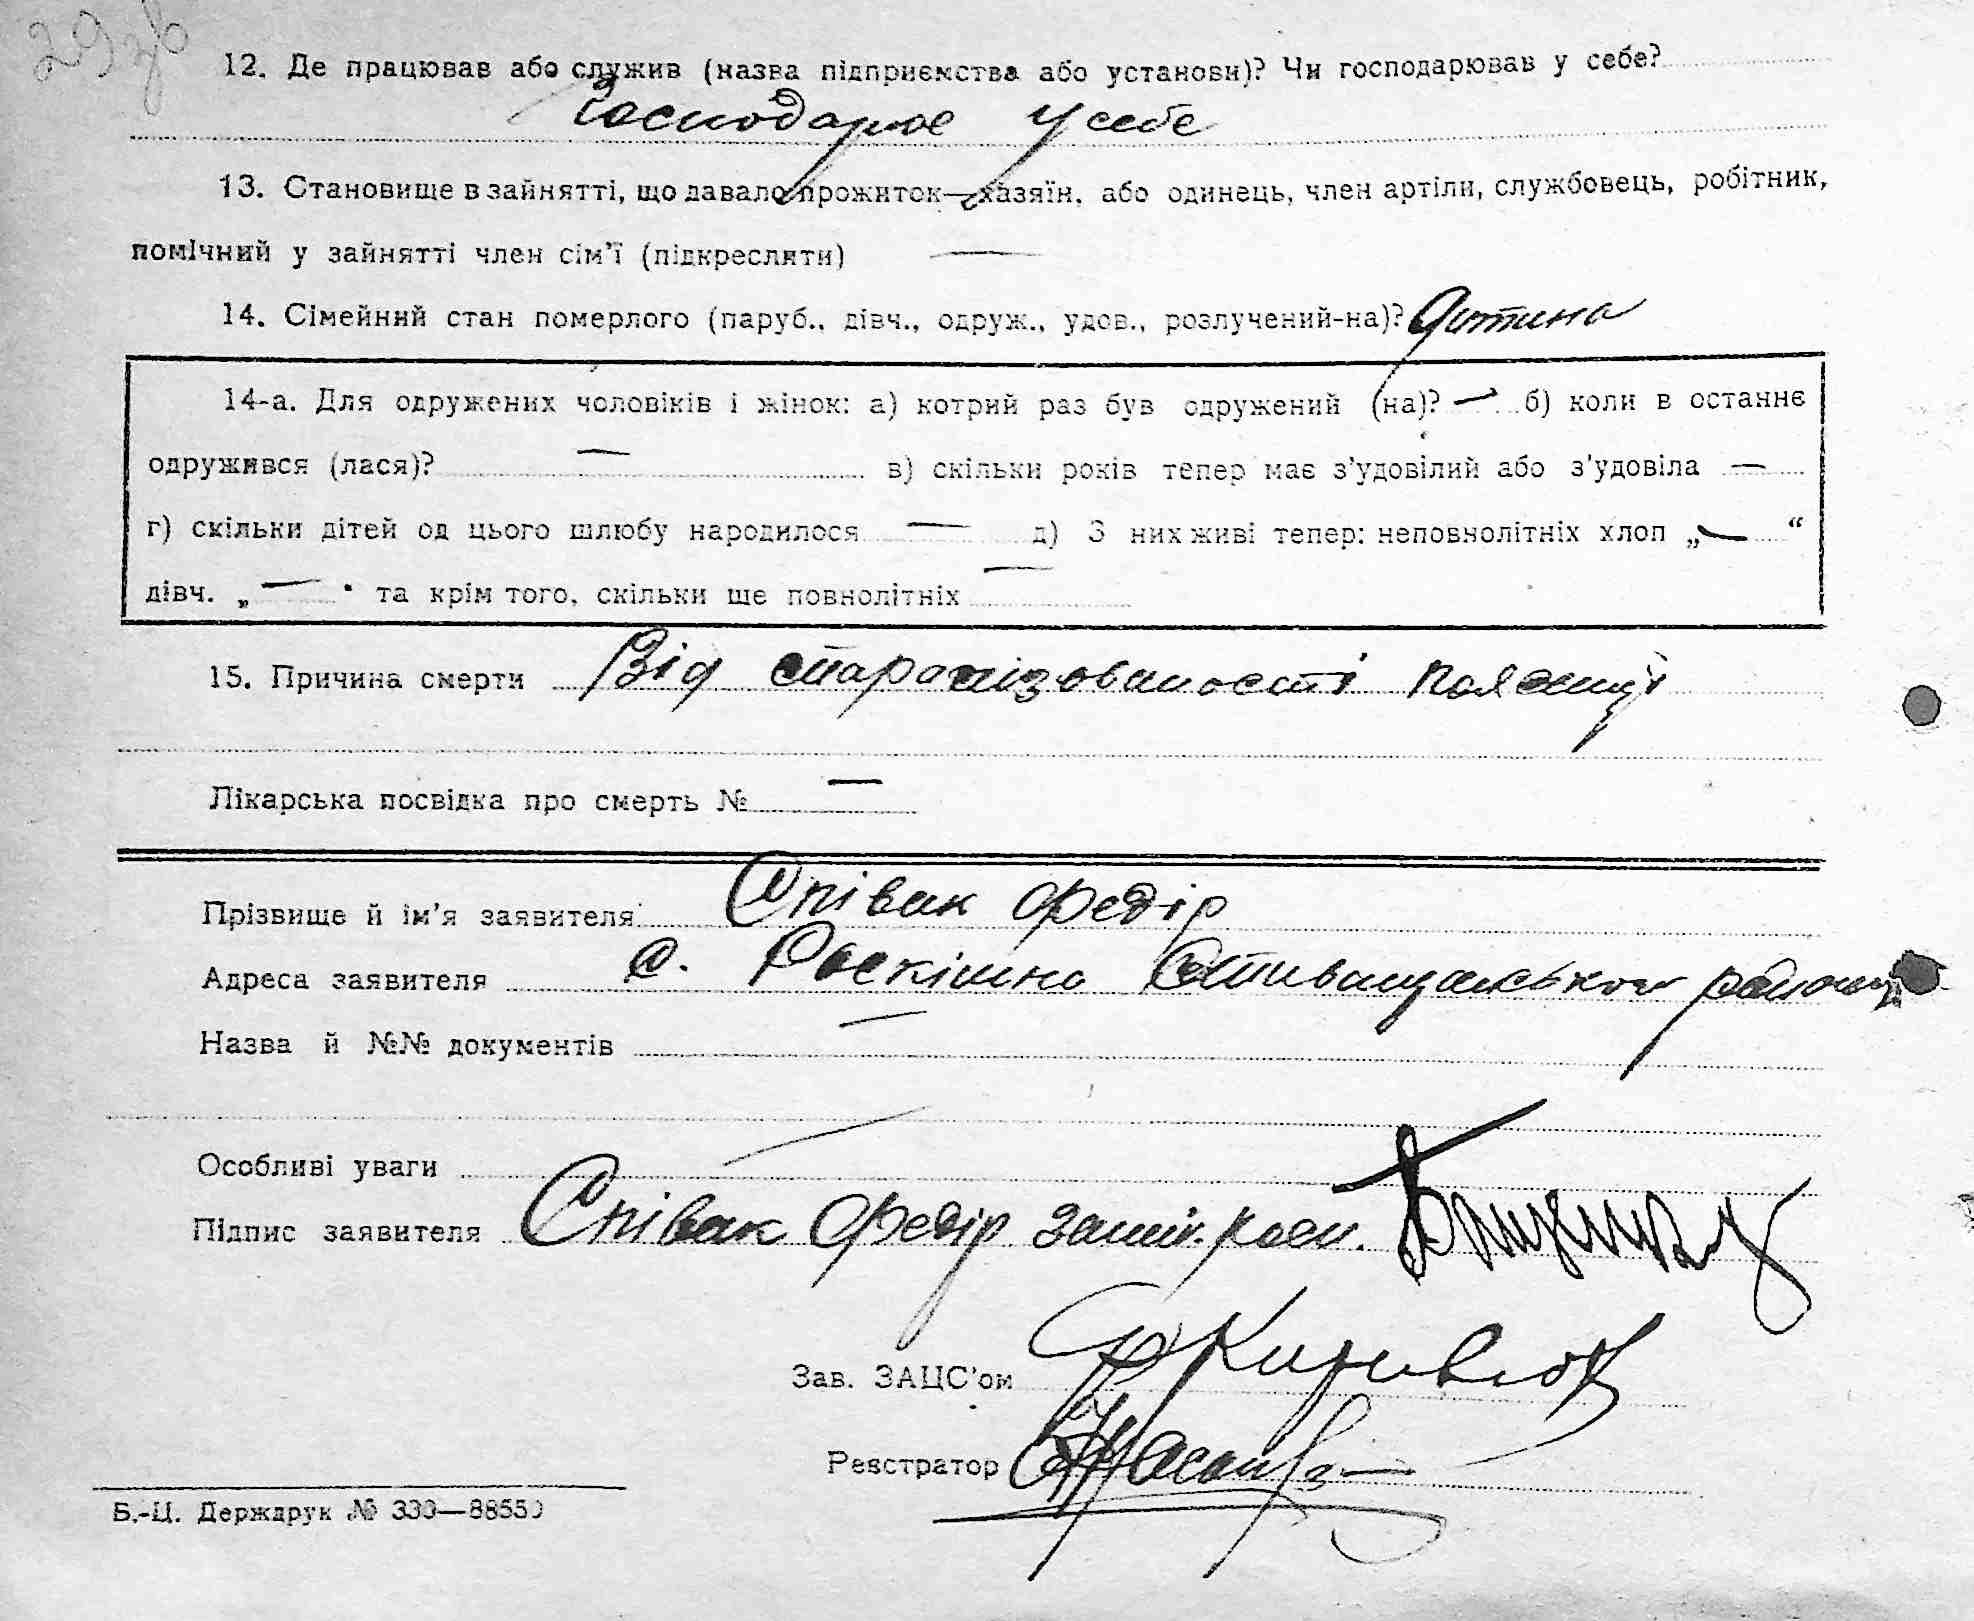 29 зв
12. Де працював або служив (назва підприємства або установи)? Чи господарював у себе?
Господарює у себе
13. Становище в зайнятті, що давало прожиток—хазяїн, або одинець, член артіли, службовець, робітник,
помічний у зайнятті член сім'ї (підкреслити) —
14. Сімейний стан померлого (паруб., дівч., одруж., удов., розлучений-на)? Дитина
14-а. Для одружених чоловіків і жінок: а) котрий раз був одружений (на)? — б) коли в останнє
одружився (лася)? — в) скільки років тепер має з'удовілий або з'удовіла —
г) скільки дітей од цього шлюбу народилося — д) З них живі тепер: неповнолітніх хлоп „—“
дівч. „—" та крім того, скільки ще повнолітніх —
15. Причина смерти Від спаралізованості поясниці
Лікарська посвідка про смерть № —
Прізвище й ім'я заявителя: Співак Федір
Адреса заявителя с. Роскішна Ставищанського району
Назва й №№ документів —
Особливі уваги —
Підпис заявителя Співак Федір
Зав. ЗАЦС'ом
Реєстратор
Б.-Ц. Держдрук № 330—88550